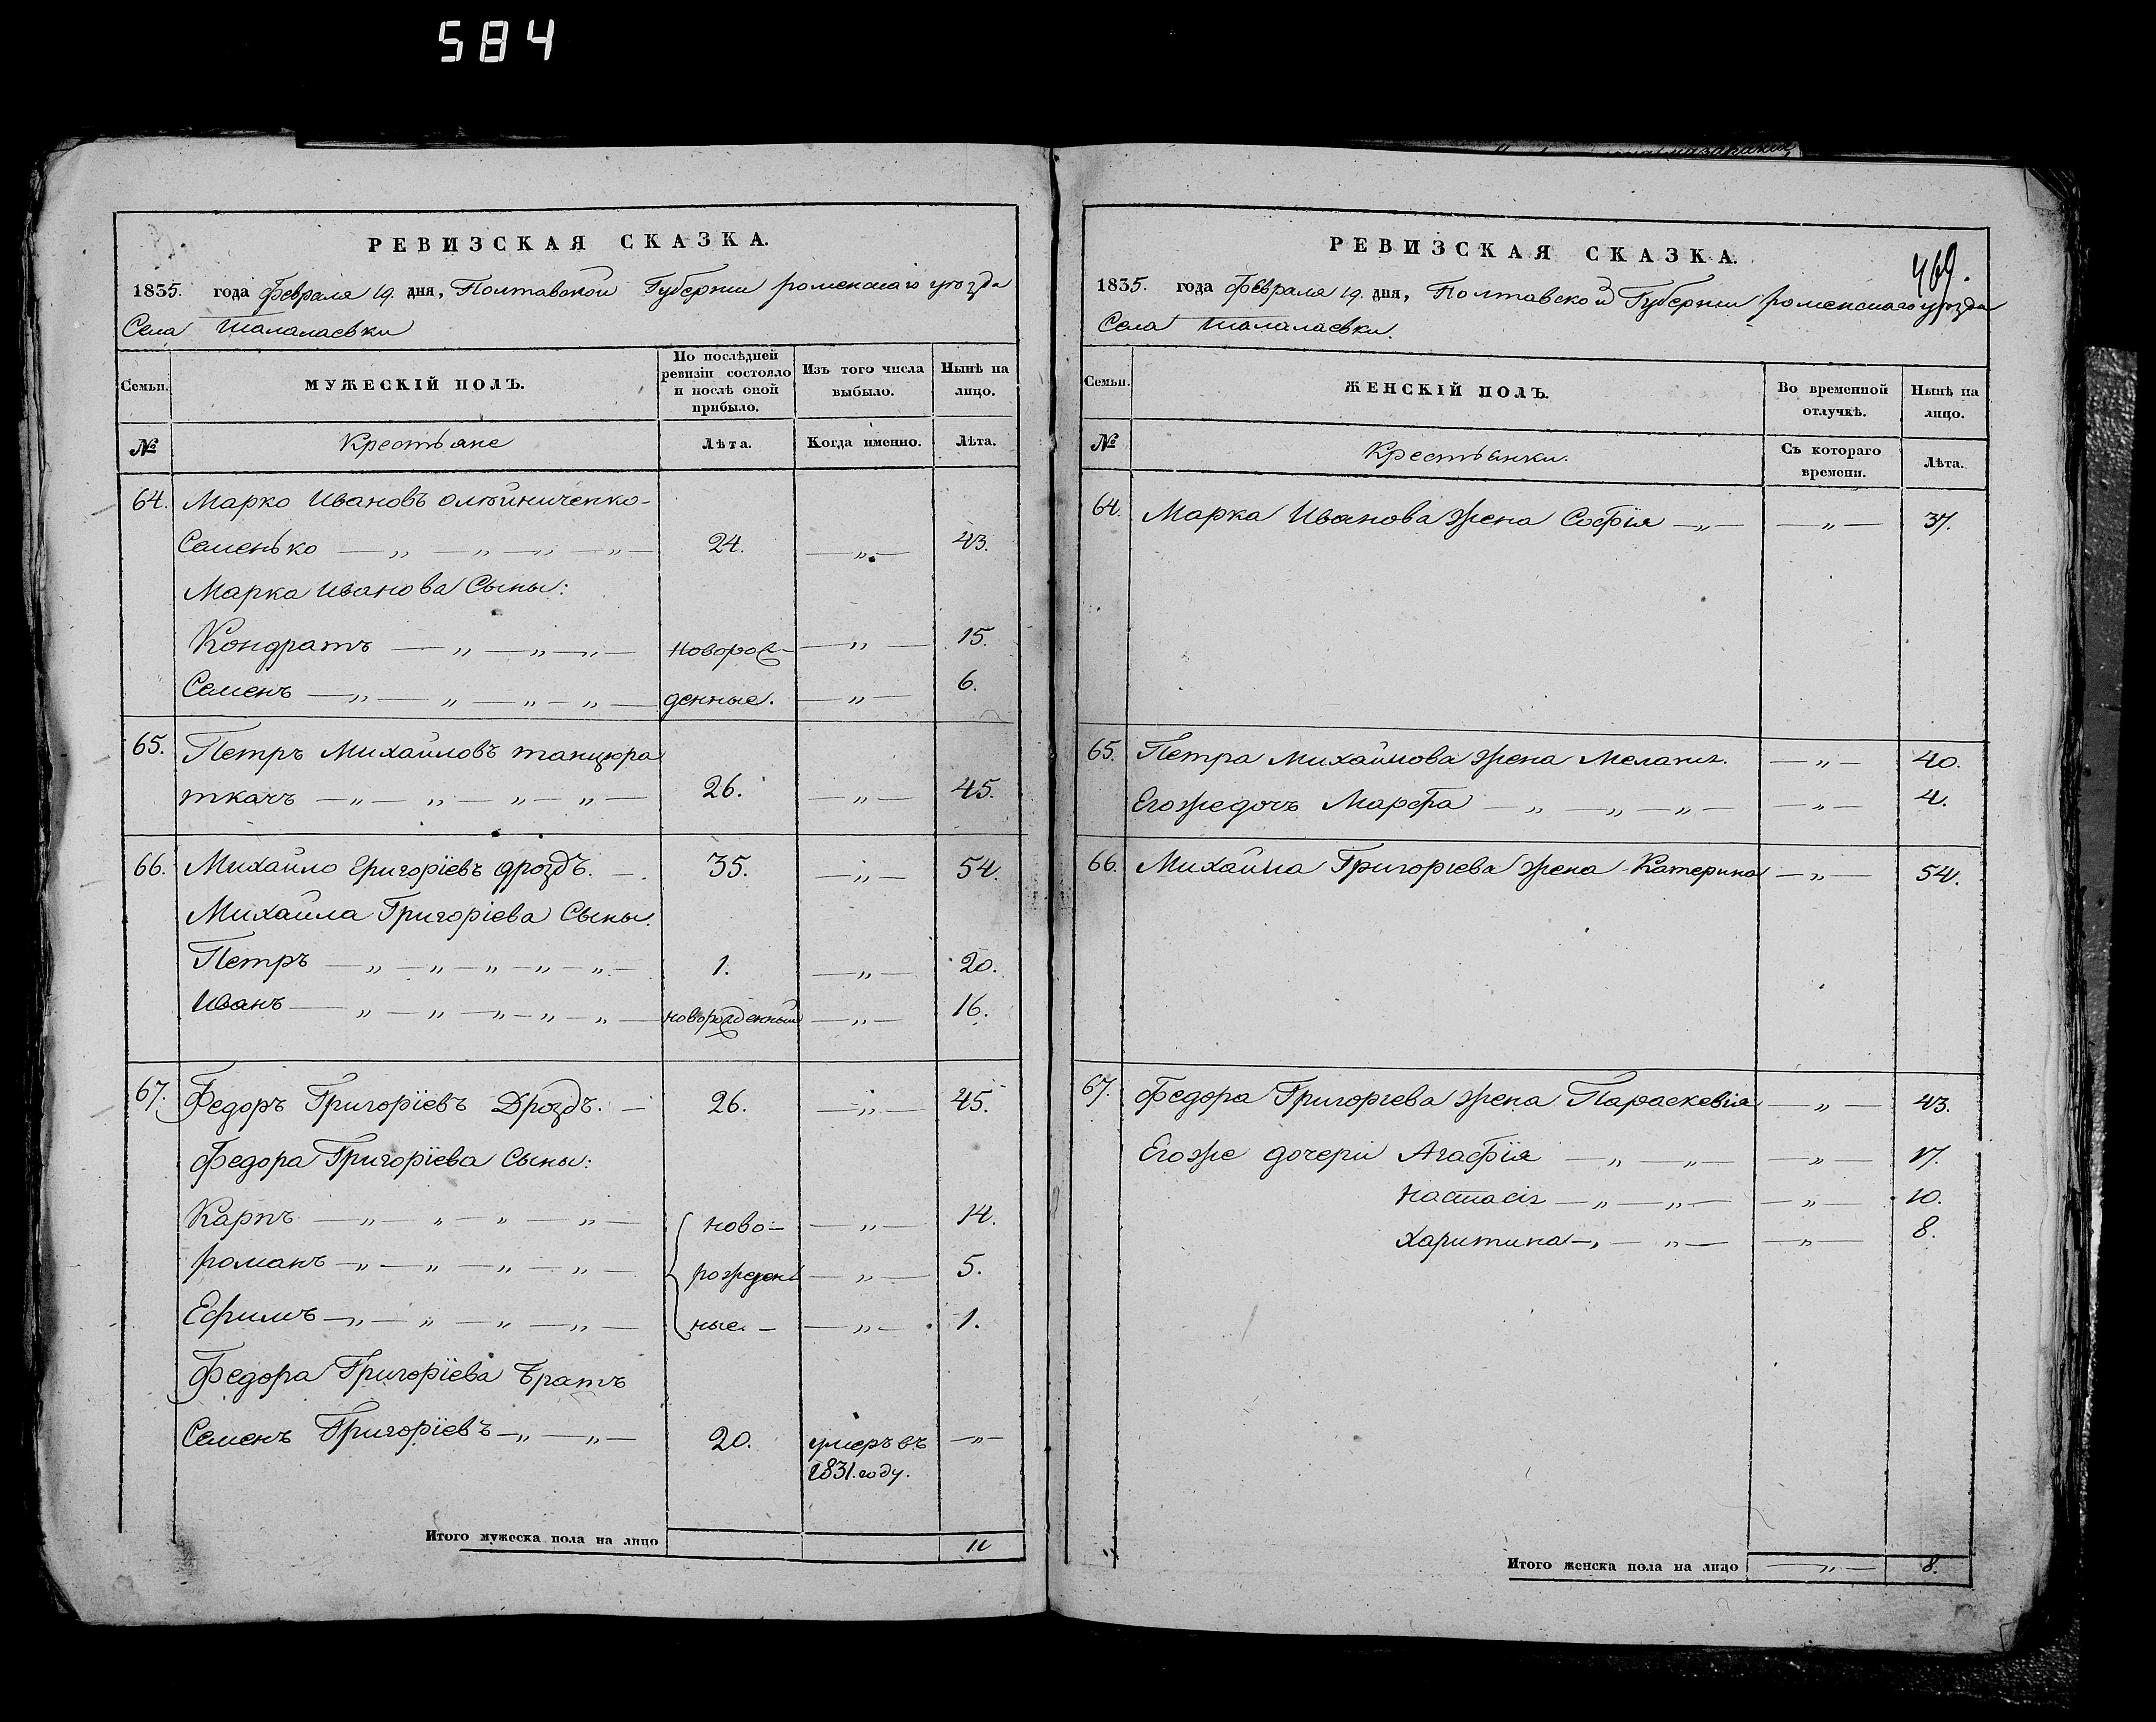 584
РЕВИЗСКАЯ СКАЗКА.
1835. года февраля 19. дня, Полтавской Губернии роменскаго уѣзда
Села Талалаевки
Семьи. МУЖЕСКІЙ ПОЛЪ. По послѣдней ревизіи состояло и послѣ оной прибыло. Изъ того числа выбыло. Нынѣ на лицо.
№ Крестьяне Лѣта. Когда именно. Лѣта.
64. Марко Ивановъ олѣйниченко-
Семенько — „ — „ — „ — „ — 24. — „ — 43.
Марка Иванова Сыны:
Кондратъ — „ — „ — „ — новорож- — „ — 15.
Семенъ — „ — „ — „ — „ — денные. — „ — 6.
65. Петръ Михайловъ танцюра
ткачъ — „ — „ — „ — „ — 26. — „ — 45.
66. Михайло Григоріевъ дроздъ. — 35. — „ — 54.
Михайла Григоріева Сыны.
Петръ — „ — „ — „ — „ — „ — 1. — „ — 20.
Иванъ — „ — „ — „ — „ — „ — новорожденный — „ — 16.
67. Федоръ Григоріевъ Дроздъ. — 26. — „ — 45.
Федора Григоріева Сыны:
Карпъ — „ — „ — „ — „ — ново- — „ — 14.
романъ — „ — „ — „ — „ — рожден — „ — 5.
Ефимъ — „ — „ — „ — „ — ные. — — „ — 1.
Федора Григоріева братъ
Семенъ Григоріевъ — „ — „ — 20. умеръ въ — „ —
1831. году.
Итого мужеска пола на лицо 11
РЕВИЗСКАЯ СКАЗКА.
469.
1835. года февраля 19. дня, Полтавской Губернии роменскаго уѣзда
Села Талалаевки.
Семьи. ЖЕНСКІЙ ПОЛЪ. Во временной отлучкѣ. Нынѣ на лицо.
№ Крестьянки. Съ котораго времени. Лѣта.
64. Марка Иванова жена Софія — „ — — „ — 37.
65. Петра Михайлова жена Меланія. — „ — 40.
Егожедочь Марфа — „ — „ — „ — — „ — 4.
66. Михайла Григоріева жена Катерина — „ — 54.
67. Федора Григоріева жена Параскевія — „ — 43.
Егоже дочери Агафія — „ — „ — — „ — 17.
Настасія — „ — „ — — „ — 10.
Харитина — „ — „ — — „ — 8.
Итого женска пола на лицо — „ — 8.